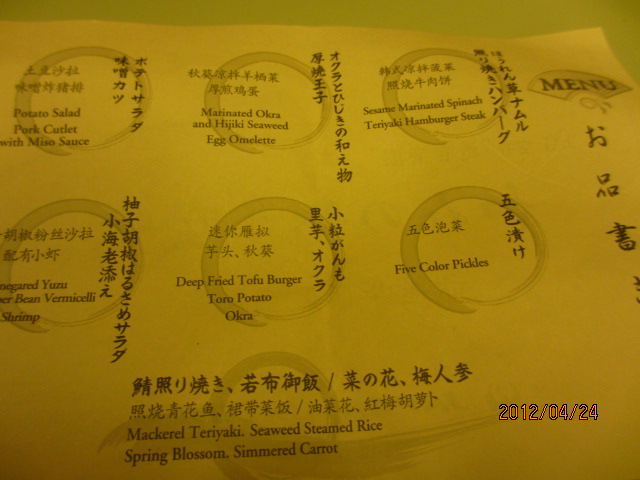 MENU
お品書
ほうれん草ナムル
照り焼きハンバーグ
韩式凉拌菠菜
照烧牛肉饼
Sesame Marinated Spinach
Teriyaki Hamburger Steak
オクラとひじきの和え物
厚焼玉子
秋葵凉拌羊栖菜
厚煎鸡蛋
Marinated Okra
and Hijiki Seaweed
Egg Omelette
ポテトサラダ
味噌カツ
土豆沙拉
味噌炸猪排
Potato Salad
Pork Cutlet
with Miso Sauce
五色漬け
五色泡菜
Five Color Pickles
小粒がんも
里芋、オクラ
迷你雁拟
芋头、秋葵
Deep Fried Tofu Burger
Toro Potato
Okra
柚子胡椒はるさめサラダ
小海老添え
胡椒粉丝沙拉
配有小虾
Yuzu
Bean Vermicelli
Shrimp
鯖照り焼き、若布御飯 / 菜の花、梅人参
照烧青花鱼、裙带菜饭 / 油菜花、紅梅胡萝卜
Mackerel Teriyaki. Seaweed Steamed Rice
Spring Blossom. Simmered Carrot
2012/04/24